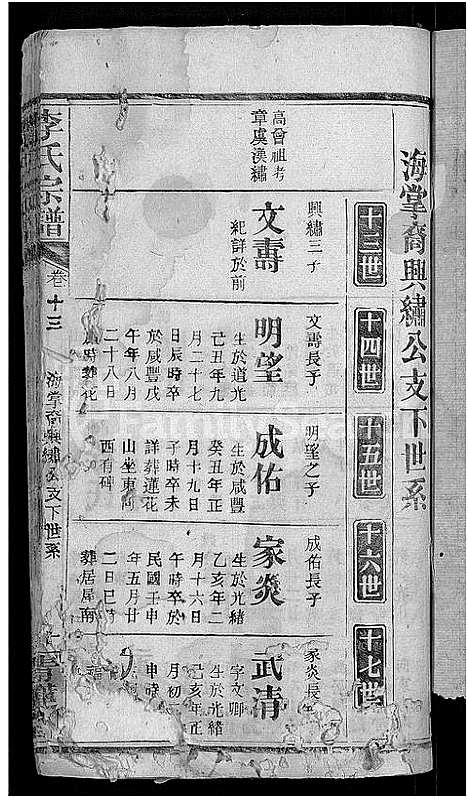 海棠裔興繡公支下世系
十三世
十四世
十五世
十六世
十七世
高曾祖考
章虞渼繡
興繡三子
文壽
紀詳於前
文壽長子
明望
生於道光
己丑年九
月二十七
日辰時卒
於咸豐戊
午年八月
二十八日
時葬花
明望之子
成佑
生於咸豐
癸丑年正
月十九日
子時卒未
詳葬蓮花
山坐東向
西有碑
成佑長子
家炎
生於光緒
乙亥年二
月十六日
午時卒於
民國壬申
年五月廿
二日巳時
葬居屋南
家炎長
武清
字文卿
生於光緒
己亥年正
月初
申時
李氏宗譜
卷十三
海棠裔興繡公支下世系